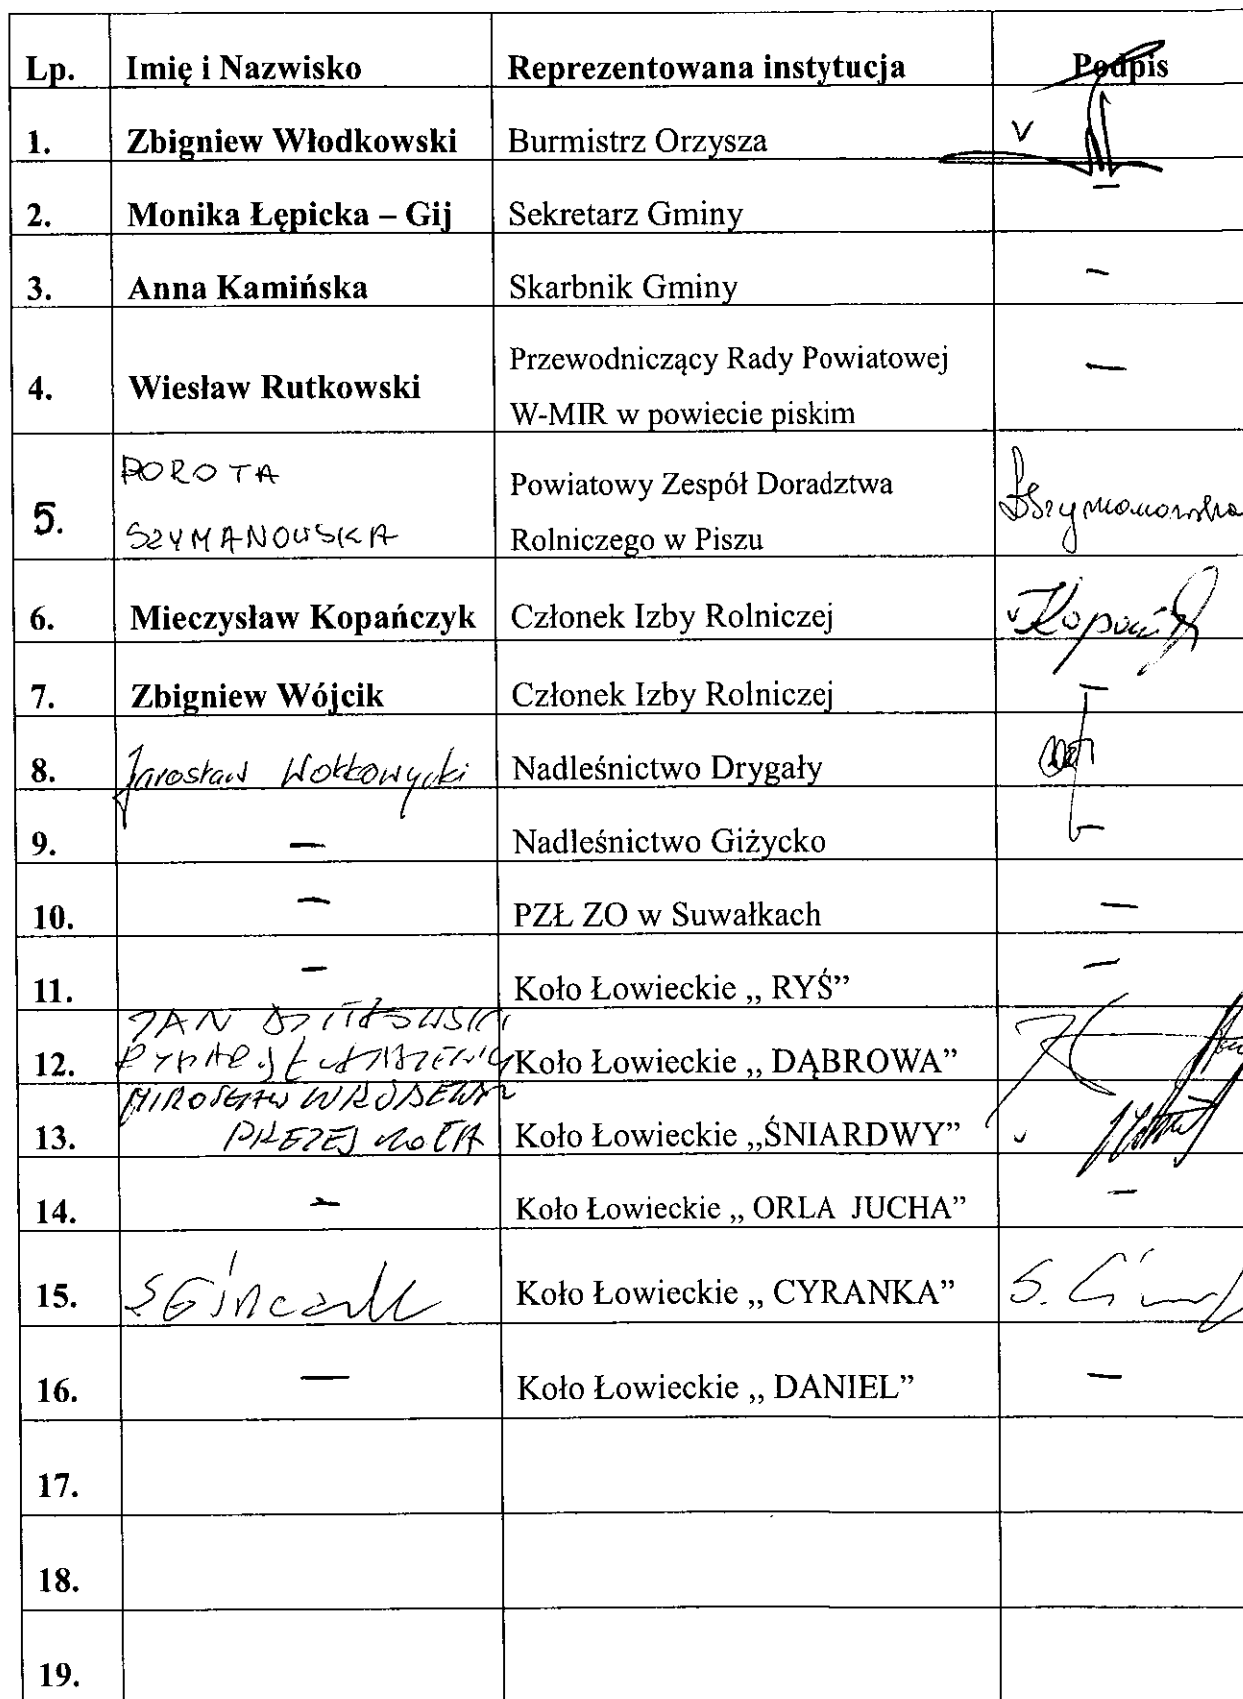 Lp. Imię i Nazwisko Reprezentowana instytucja Podpis
1. Zbigniew Włodkowski Burmistrz Orzysza v
2. Monika Łępicka – Gij Sekretarz Gminy –
3. Anna Kamińska Skarbnik Gminy –
4. Wiesław Rutkowski Przewodniczący Rady Powiatowej
W-MIR w powiecie piskim –
5. DOROTA
SZYMANOWSKA Powiatowy Zespół Doradztwa
Rolniczego w Piszu DSzymanowska
6. Mieczysław Kopańczyk Członek Izby Rolniczej v
7. Zbigniew Wójcik Członek Izby Rolniczej –
8. Jarosław Nadleśnictwo Drygały
9. – Nadleśnictwo Giżycko –
10. – PZŁ ZO w Suwałkach –
11. – Koło Łowieckie „ RYŚ” –
JAN
12. Koło Łowieckie „ DĄBROWA”
MIROSŁAW
13. PREZES KOŁA Koło Łowieckie „ŚNIARDWY” v
14. – Koło Łowieckie „ ORLA JUCHA” –
15. Koło Łowieckie „ CYRANKA” S.
16. – Koło Łowieckie „ DANIEL” –
17.
18.
19.